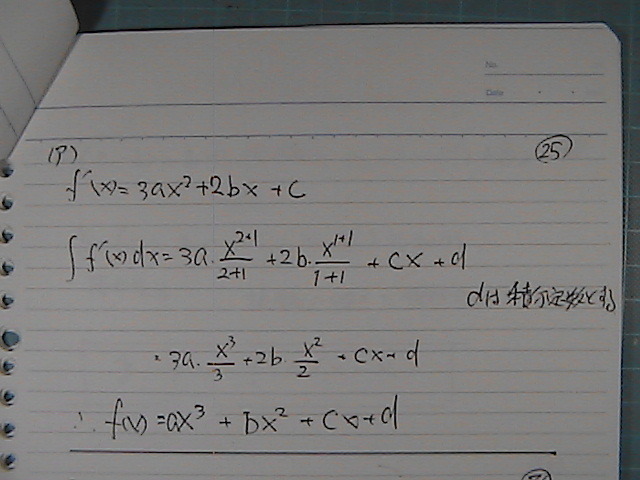 No.
Date
(P) 25
f'(x) = 3ax² + 2bx + c
∫f'(x)dx = 3a·x²⁺¹/2+1 + 2b·x¹⁺¹/1+1 + cx + d
dは積分定数とする
= 3a·x³/3 + 2b x²/2 + cx + d
∴ f(x) = ax³ + bx² + cx + d